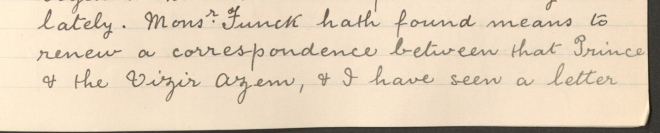 lately. Monsr. Funck hath found means to
renew a correspondence between that Prince
& the Vizir Azem, & I have seen a letter